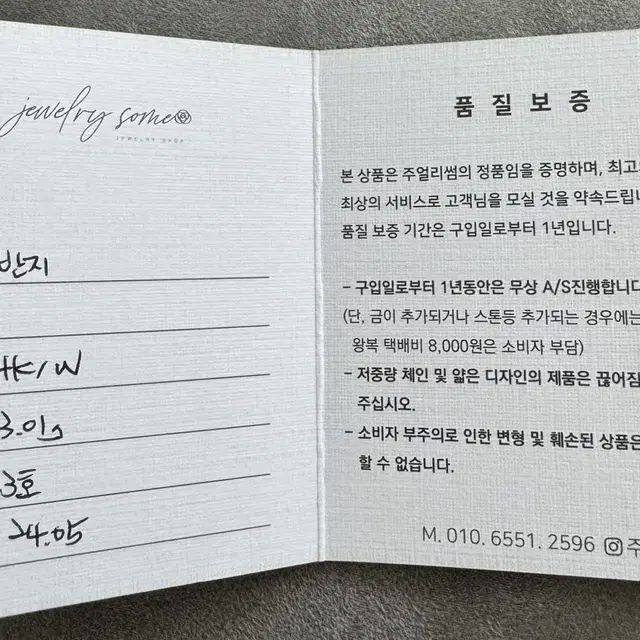 jewelry some
JEWELRY SHOP
반지
K/W
3.01g
3호
24.05
품질보증
본 상품은 주얼리썸의 정품임을 증명하며, 최고
최상의 서비스로 고객님을 모실 것을 약속드립니
품질 보증 기간은 구입일로부터 1년입니다.
- 구입일로부터 1년동안은 무상 A/S진행합니다
(단, 금이 추가되거나 스톤등 추가되는 경우에는
왕복 택배비 8,000원은 소비자 부담)
- 저중량 체인 및 얇은 디자인의 제품은 끊어짐
주십시오.
- 소비자 부주의로 인한 변형 및 훼손된 상품은
할 수 없습니다.
M. 010. 6551. 2596 주